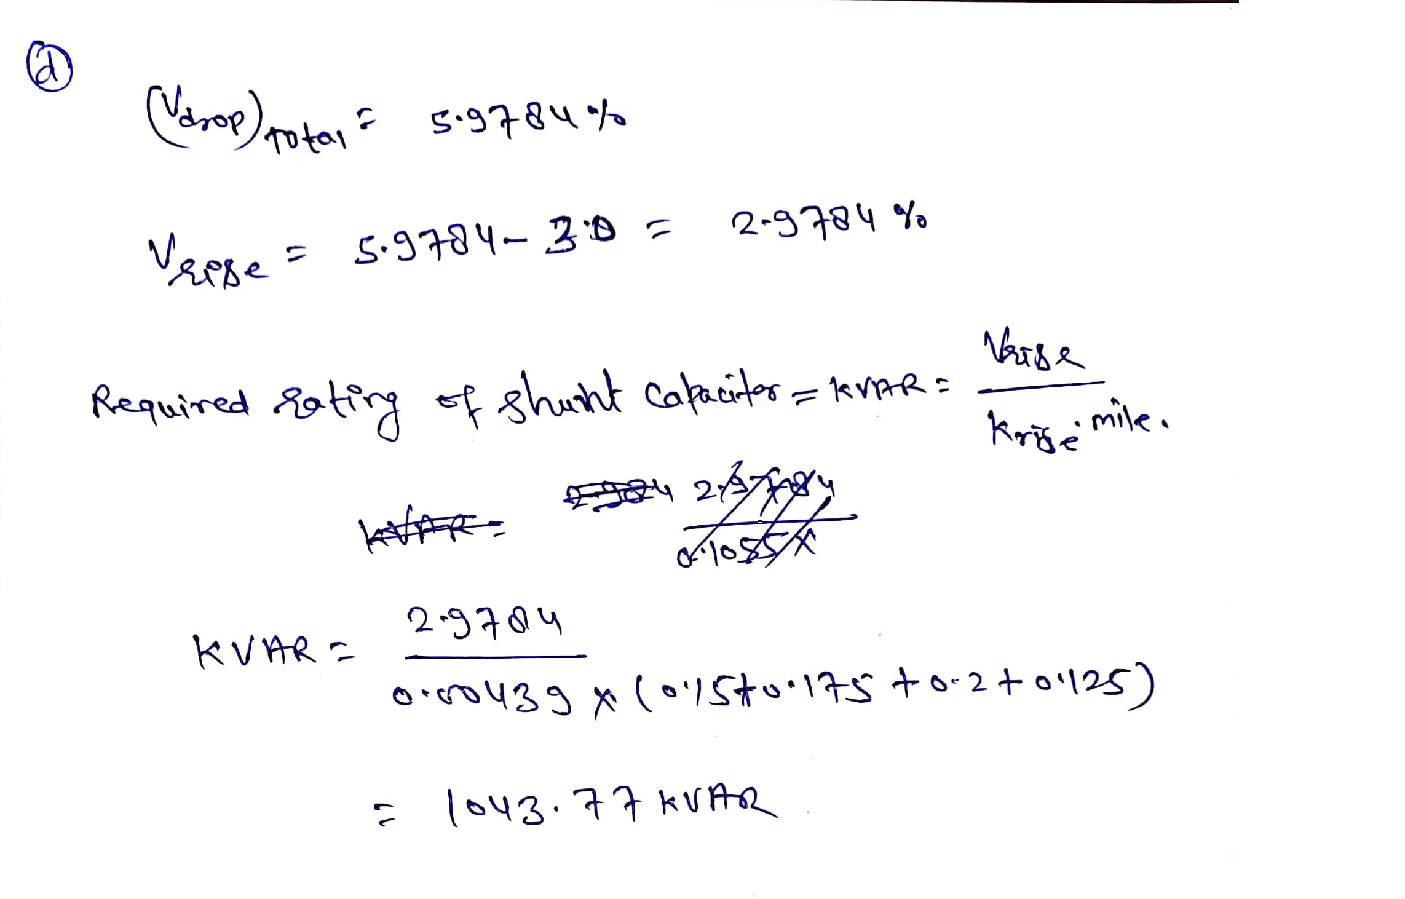 (d)
(Vdrop)Total = 5.9784%
Vrise = 5.9784 - 3.0 = 2.9784 %
Required rating of shunt capacitor = KVAR = Vrise / Krise mile.
KVAR = 2.9784 / 0.1055X
KVAR = 2.9784 / 0.00439 x (0.15+0.175 + 0.2 + 0.125)
= 1043.77 KVAR